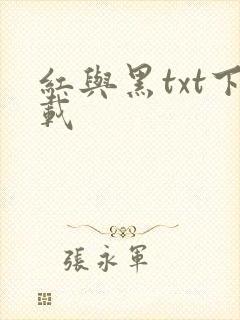 紅與黑txt下
載
張永軍